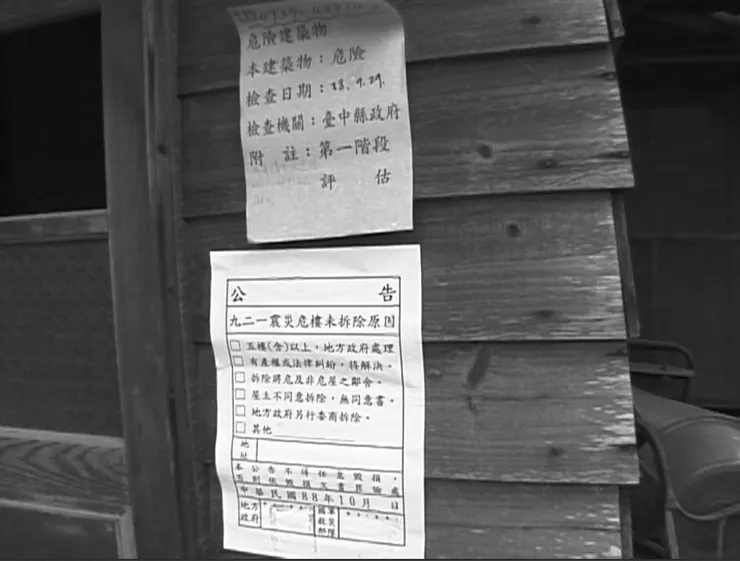 危險建築物
本建築物：危險
檢查日期：88.9.29.
檢查機關：臺中縣政府
附　註：第一階段
評　估
公　告
九二一震災危樓未拆除原因
□ 五樓(含)以上，地方政府處理
□ 有產權或法律糾紛，待解決。
□ 拆除將危及非危屋之鄰舍。
□ 屋主不同意拆除，無同意書。
□ 地方政府另行委商拆除。
□ 其他
地址
本公告不得任意毀損，
否則依毀損文書罪論處
中華民國88年10月　日
地方政府
國軍救災部隊